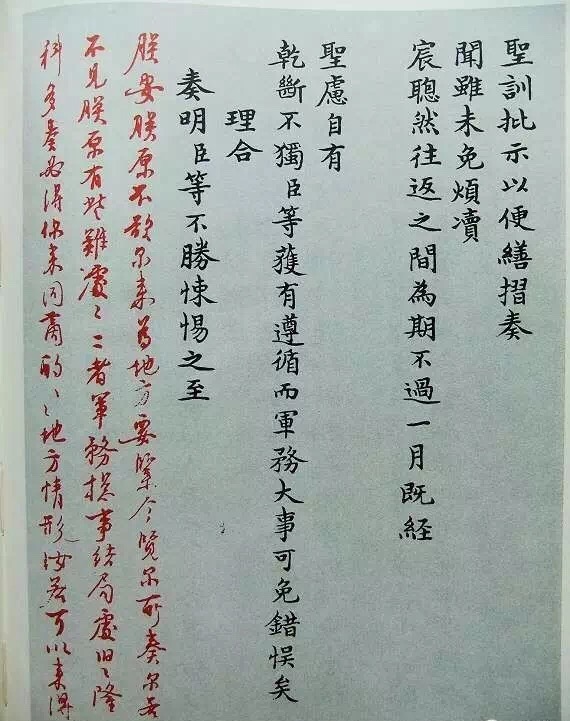 聖訓批示以便繕摺奏
聞雖未免煩瀆
宸聰然往返之間為期不過一月既経
聖慮自有
乾斷不獨臣等獲有遵循而軍務大事可免錯悞矣
理合
奏明臣等不勝悚惕之至
朕安朕原不欲尔来為地方要緊今覧尔所奏尔若
不見朕原有些難處〻〻者軍務總事結局處旧〻隆
科多奏必得你来同商酌〻〻地方情形汝若可以来得